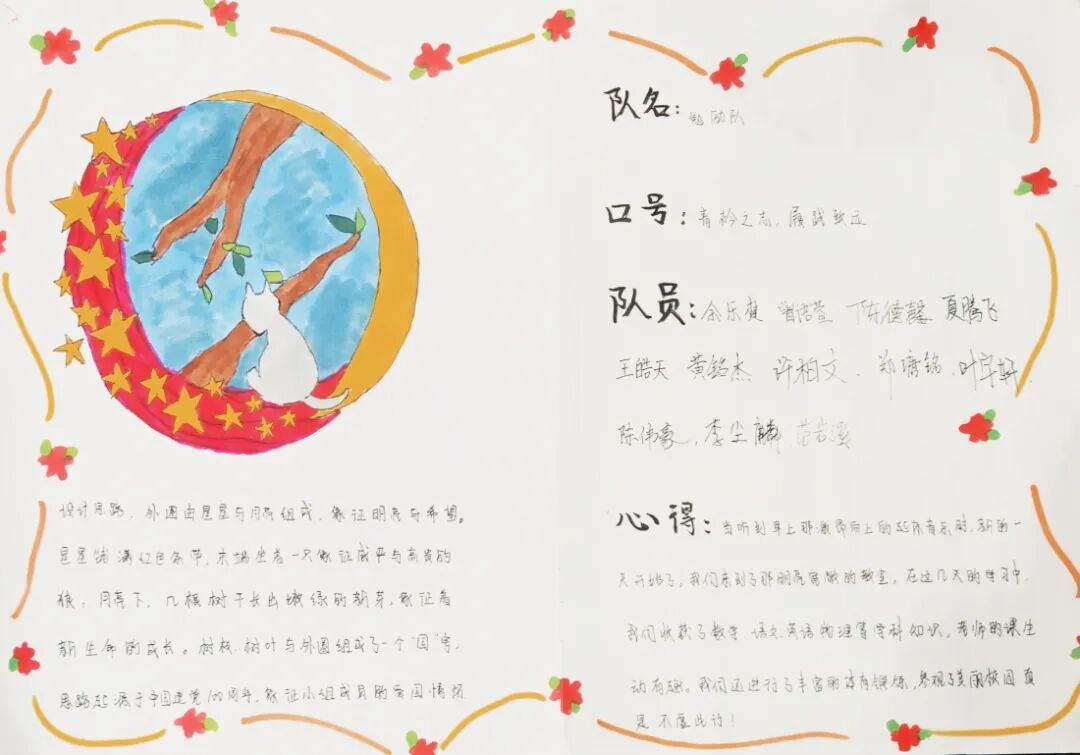 设计思路:外圈由星星与月亮组成,象证明亮与希望。
星星铺满红色条带,末端坐着一只象证与高贵的
猫。月亮下,几根树干长出嫩绿的新芽,象证着
新生命的成长。树枝、树叶与外圈组成了一个"国"字,
思路起源于中国建党100周年,象证小组成员的爱国情怀
队名:勉励队
口号:青衿之志,履践致远
队员:余乐 曾语萱 陈德馨 夏腾飞
王皓天 黄铭杰 许柏文 郑铭 叶宇
陈伟豪 李尘麟 范若溪
心得:当听到早上那激昂向上的起床音乐时,新的一
天开始了。我们来到了那明亮宽敞的教室。在这几天的学习中,
我们收获了数学 语文 英语 物理等学科知识。老师的课生
动有趣。我们还进行了丰富的体育锻炼,参观了美丽校园 真
是不虚此行!